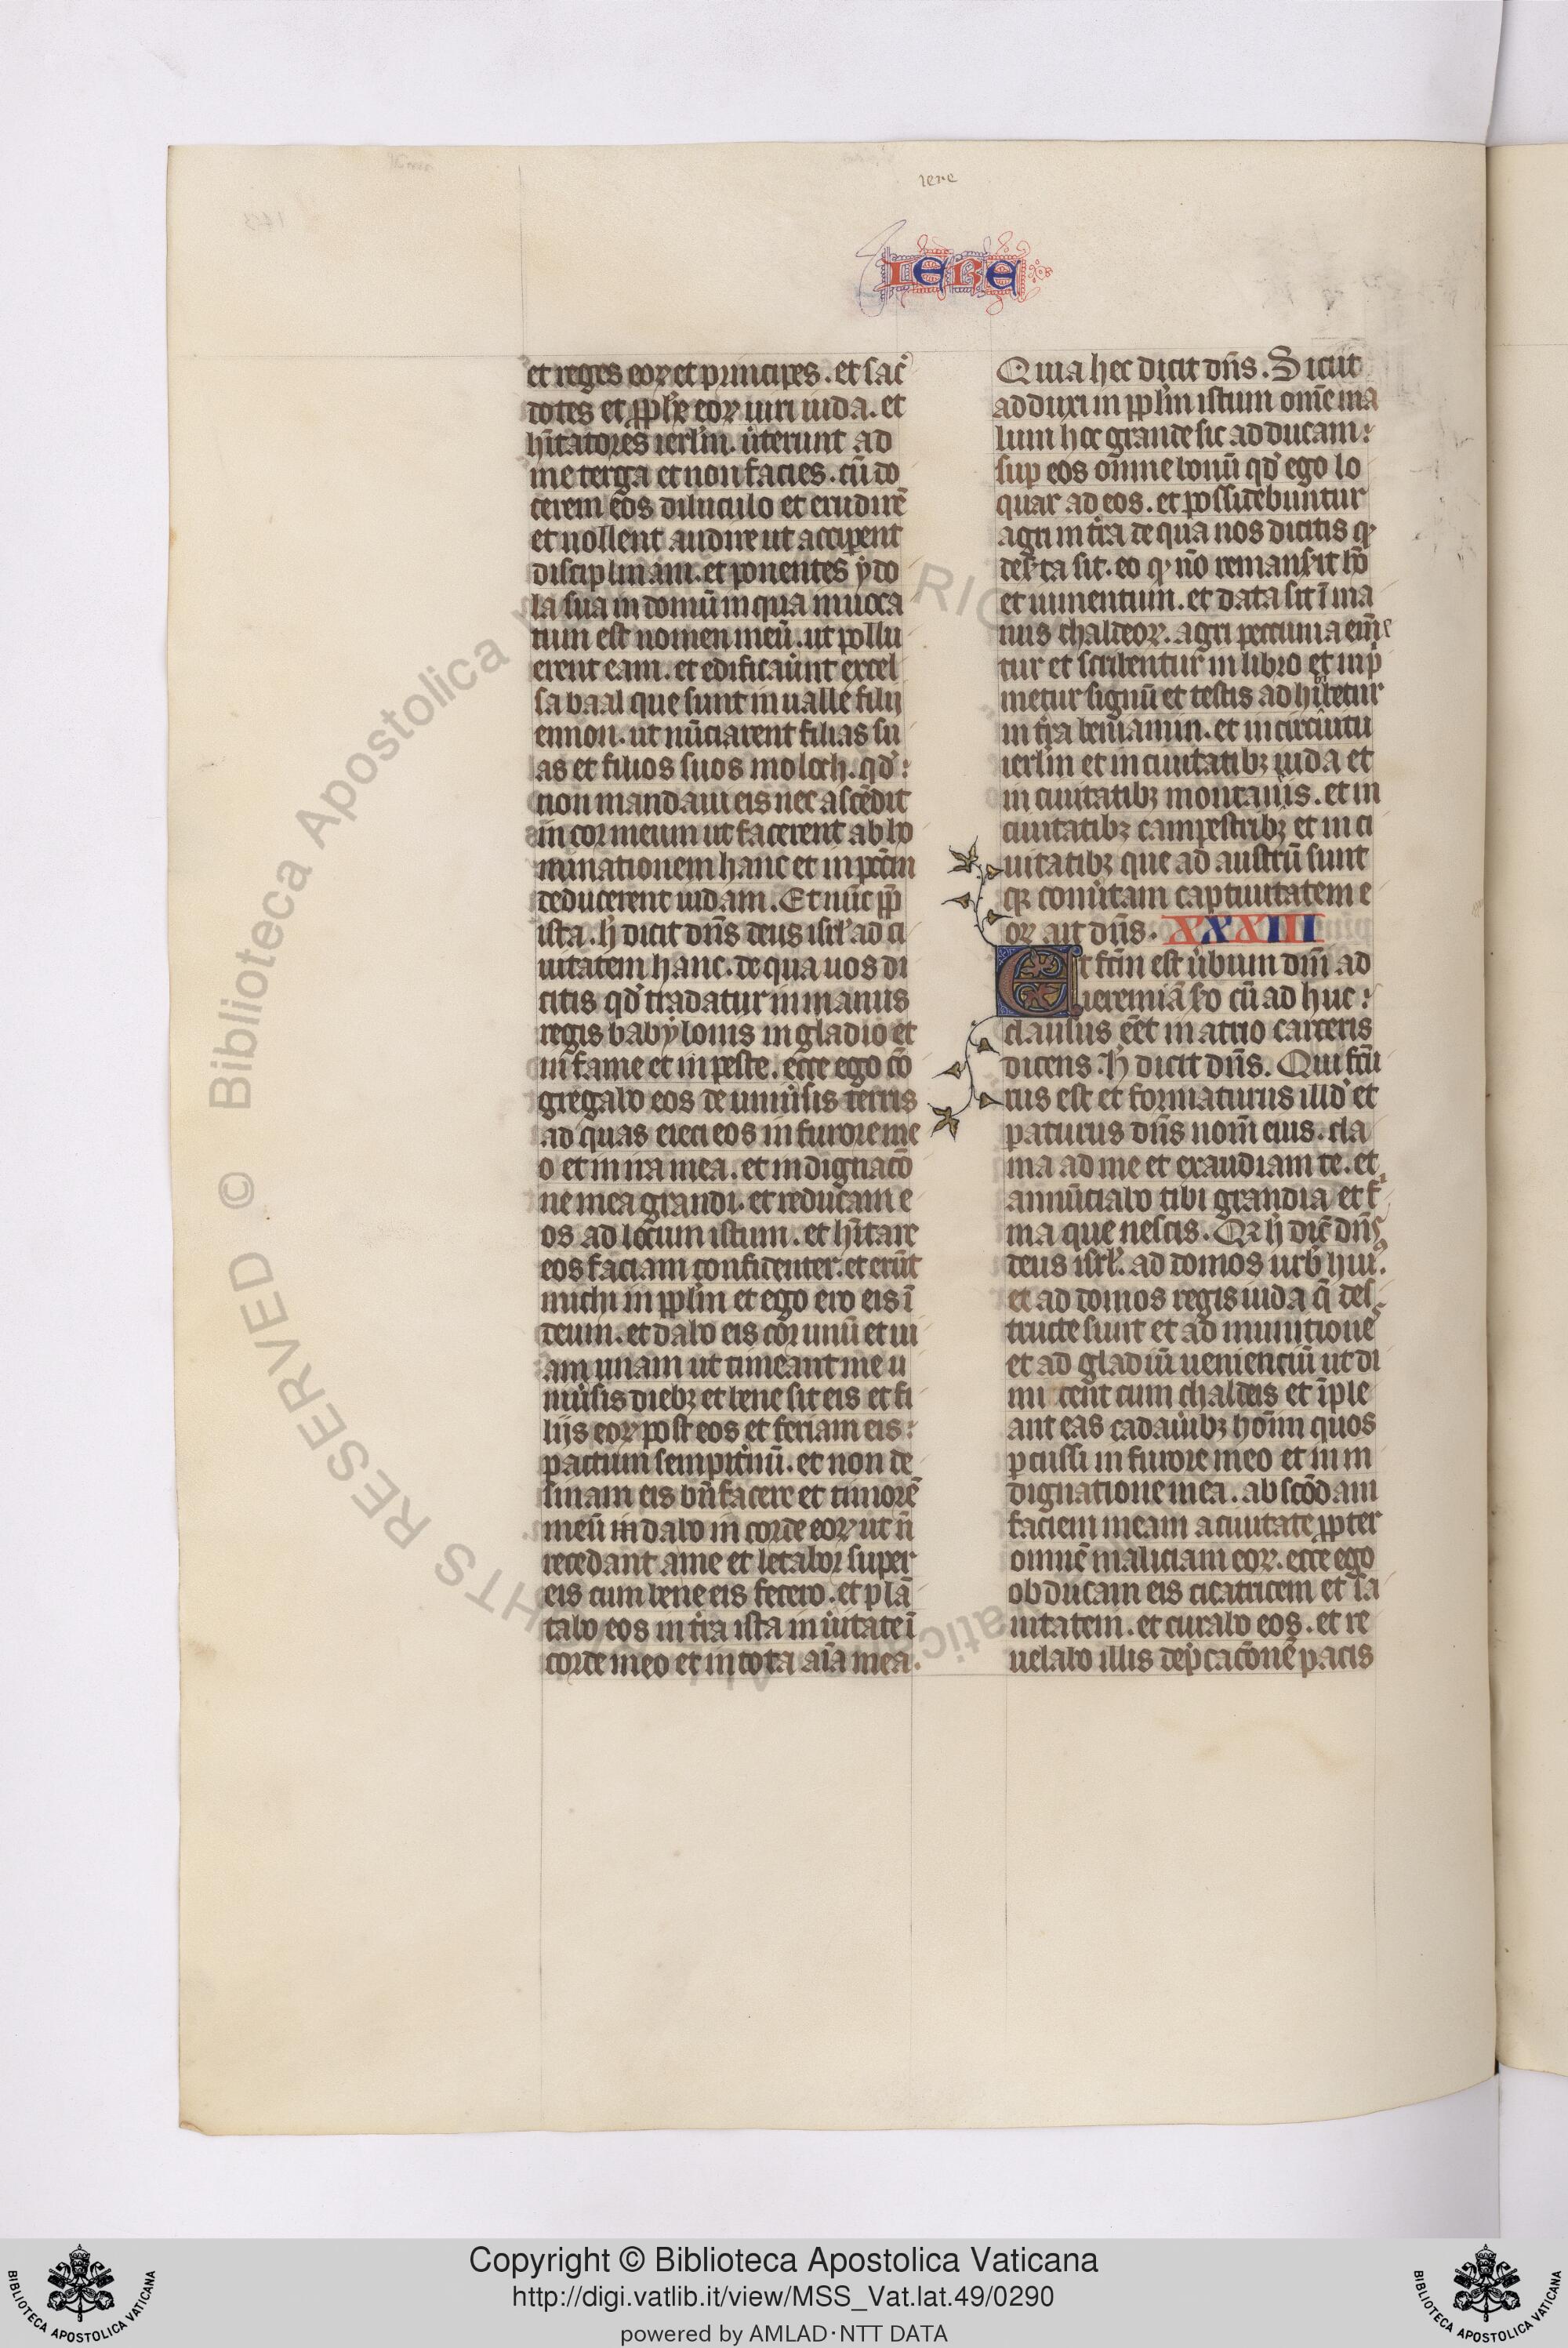 iere
IERE
et reges eoꝝ et principes. et sac̉
dotes et ꝓph̄e eoꝝ uiri iuda. et
hītatores ierl̄m. u̾terunt ad
me terga et non facies. cū do
cerem eos diluculo et erudirē
et nollent audire ut acciperent
disciplinam. et ponentes ydo
la sua in domū in qua inuoca
tum est nomen meū. ut pollu
erent eam. et edificau̾unt excel
sa baal que sunt in ualle filij
ennon. ut nūciarent filias su
as et filios suos moloch. qd̾:
non mandaui eis nec ascēdit
in cor meum ut facerent abho
minationem hanc et in pctm̄
deducerent iudam. Et nūc ꝓp̄
ista. h̾ dicit dn̄s deus isrl̾ ad ci
uitatem hanc. de qua uos di
citis qd̾ tradatur in manus
regis babylonis in gladio et
in fame et in peste. ecce ego cō
gregabo eos de uniu̾sis terris
ad quas eieci eos in furore me
o et in ira mea. et indignacō
ne mea grandi. et reducam e
os ad locum istum. et hītare
eos faciam confidenter. et erūt
michi in ppl̄m et ego ero eis ī
deum. et dabo eis cor unū et ui
am unam ut timeant me u
niu̾sis diebꝫ et bene sit eis et fi
lijs eoꝝ post eos et feriam eis:
pactum sempit̾nū. et non de
sinam eis bn̄facere et timorē
meū in dabo in corde eoꝝ ut n̄
recedant a me et letabor super
eis cum bene eis fecero. et plā
tabo eos in tr̄a ista in u̾itate ī
corde meo et in tota aīa mea.
Quia hec dicit dn̄s. Sicut
adduxi in ppl̄m istum om̄e ma
lum hoc grande sic adducam:
suꝑ eos omne bonū qd̾ ego lo
quar ad eos. et possidebuntur
agri in tr̄a de qua uos dicitis qꝫ
des̾ta sit. eo qꝫ nō remans̾it hō
et iumentum. et data sit ī ma
nus chaldeoꝝ. agri peccunia em̄e
tur et scribentur in libro et inp̾
metur signū et testis adhibetur
in tr̄a beniamin. et in circuitu
ierl̄m et in ciuitatibꝫ iuda et
in ciuitatibꝫ montanis. et in
ciuitatibꝫ campestribꝫ et in ci
uitatibꝫ que ad austrū sunt
qꝛ conu̾tam captiuitatem e
oꝝ ait dn̄s. XXXIII
Et fc̄m est u̾bum dn̄i ad
ieremiā s̾do cū ad huc:
clausus eēt in atrio carceris
dicens. h̾ dicit dn̄s. Qui fc̄u
rus est et formaturus illd̾ et
paturus dn̄s nom̄ eius. cla
ma ad me et exaudiam te. et
annūciabo tibi grandia et f̾
ma que nescis. Qꝛ h̾ dic̄ dn̄s
deus isrl̾. ad domos urb̾ huiꝰ.
et ad domos regis iuda q̄ des
tructe sunt et ad munitionē
et ad gladiū uenienciū ut di
mi cent cum chaldeis et īple
ant eas cadau̾ibꝫ hoīm quos
ꝑcussi in furore meo et in in
dignatione mea. abscōdam
faciem meam a ciuitate ꝓpter
omnē maliciam eoꝝ. ecce ego
obducam eis cicatricem et sa
nitatem. et curabo eos. et re
uelabo illis dep̾cacōnē pacis
© Biblioteca Apostolica Vaticana ALL RIGHTS RESERVED
BIBLIOTECA APOSTOLICA VATICANA
Copyright © Biblioteca Apostolica Vaticana
http://digi.vatlib.it/view/MSS_Vat.lat.49/0290
powered by AMLAD·NTT DATA
BIBLIOTECA APOSTOLICA VATICANA